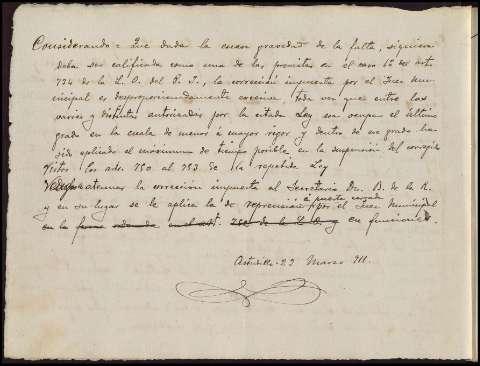 Considerando = Que dada la escasa gravedad de la falta, siquiera
deba ser calificada como una de las previstas en el caso 1º del arto
734 de la L. O. del P. J., la corrección impuesta por el Juez Mu-
nicipal es desproporcionadamente excesiva, toda vez que entre las
varias y distintas autorizadas por la citada Ley esa ocupa el último
grado en la escala de menor á mayor rigor y dentro de ese grado ha
sido aplicado el máximum de tiempo posible en la suspensión del corregido
Vistos los artos. 750 al 753 de la repetida Ley
la corrección impuesta al Secretario Dn. B. de la R.
á puerta cerrada
y en su lugar se le aplica la de reprensión por el Juez Municipal
en la forma en el art. de la L. O. y en funciones.
Astudillo - 23 Marzo 911.